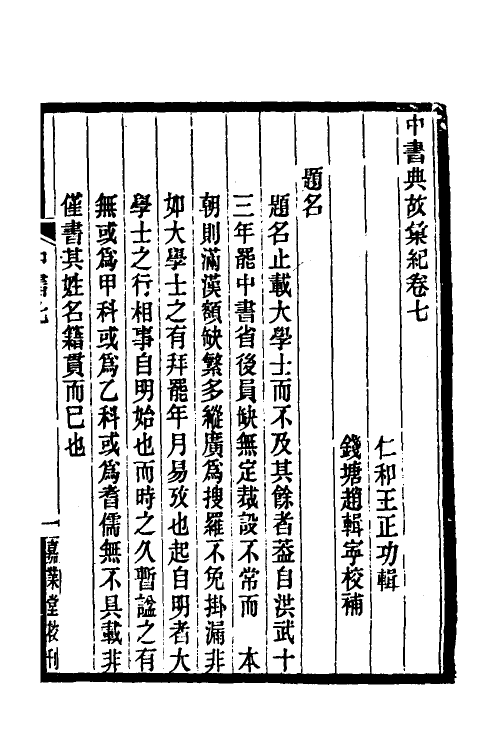 中書典故彙紀卷七
仁和王正功輯
錢塘趙輯寧校補
題名
題名止載大學士而不及其餘者葢自洪武十
三年罷中書省後員缺無定裁設不常而　本
朝則滿漢額缺繁多縱廣爲搜羅不免掛漏非
如大學士之有拜罷年月易攷也起自明者大
學士之行相事自明始也而時之久暫諡之有
無或爲甲科或爲乙科或爲耆儒無不具載非
僅書其姓名籍貫而已也
中書七
一
嘉業堂校刊